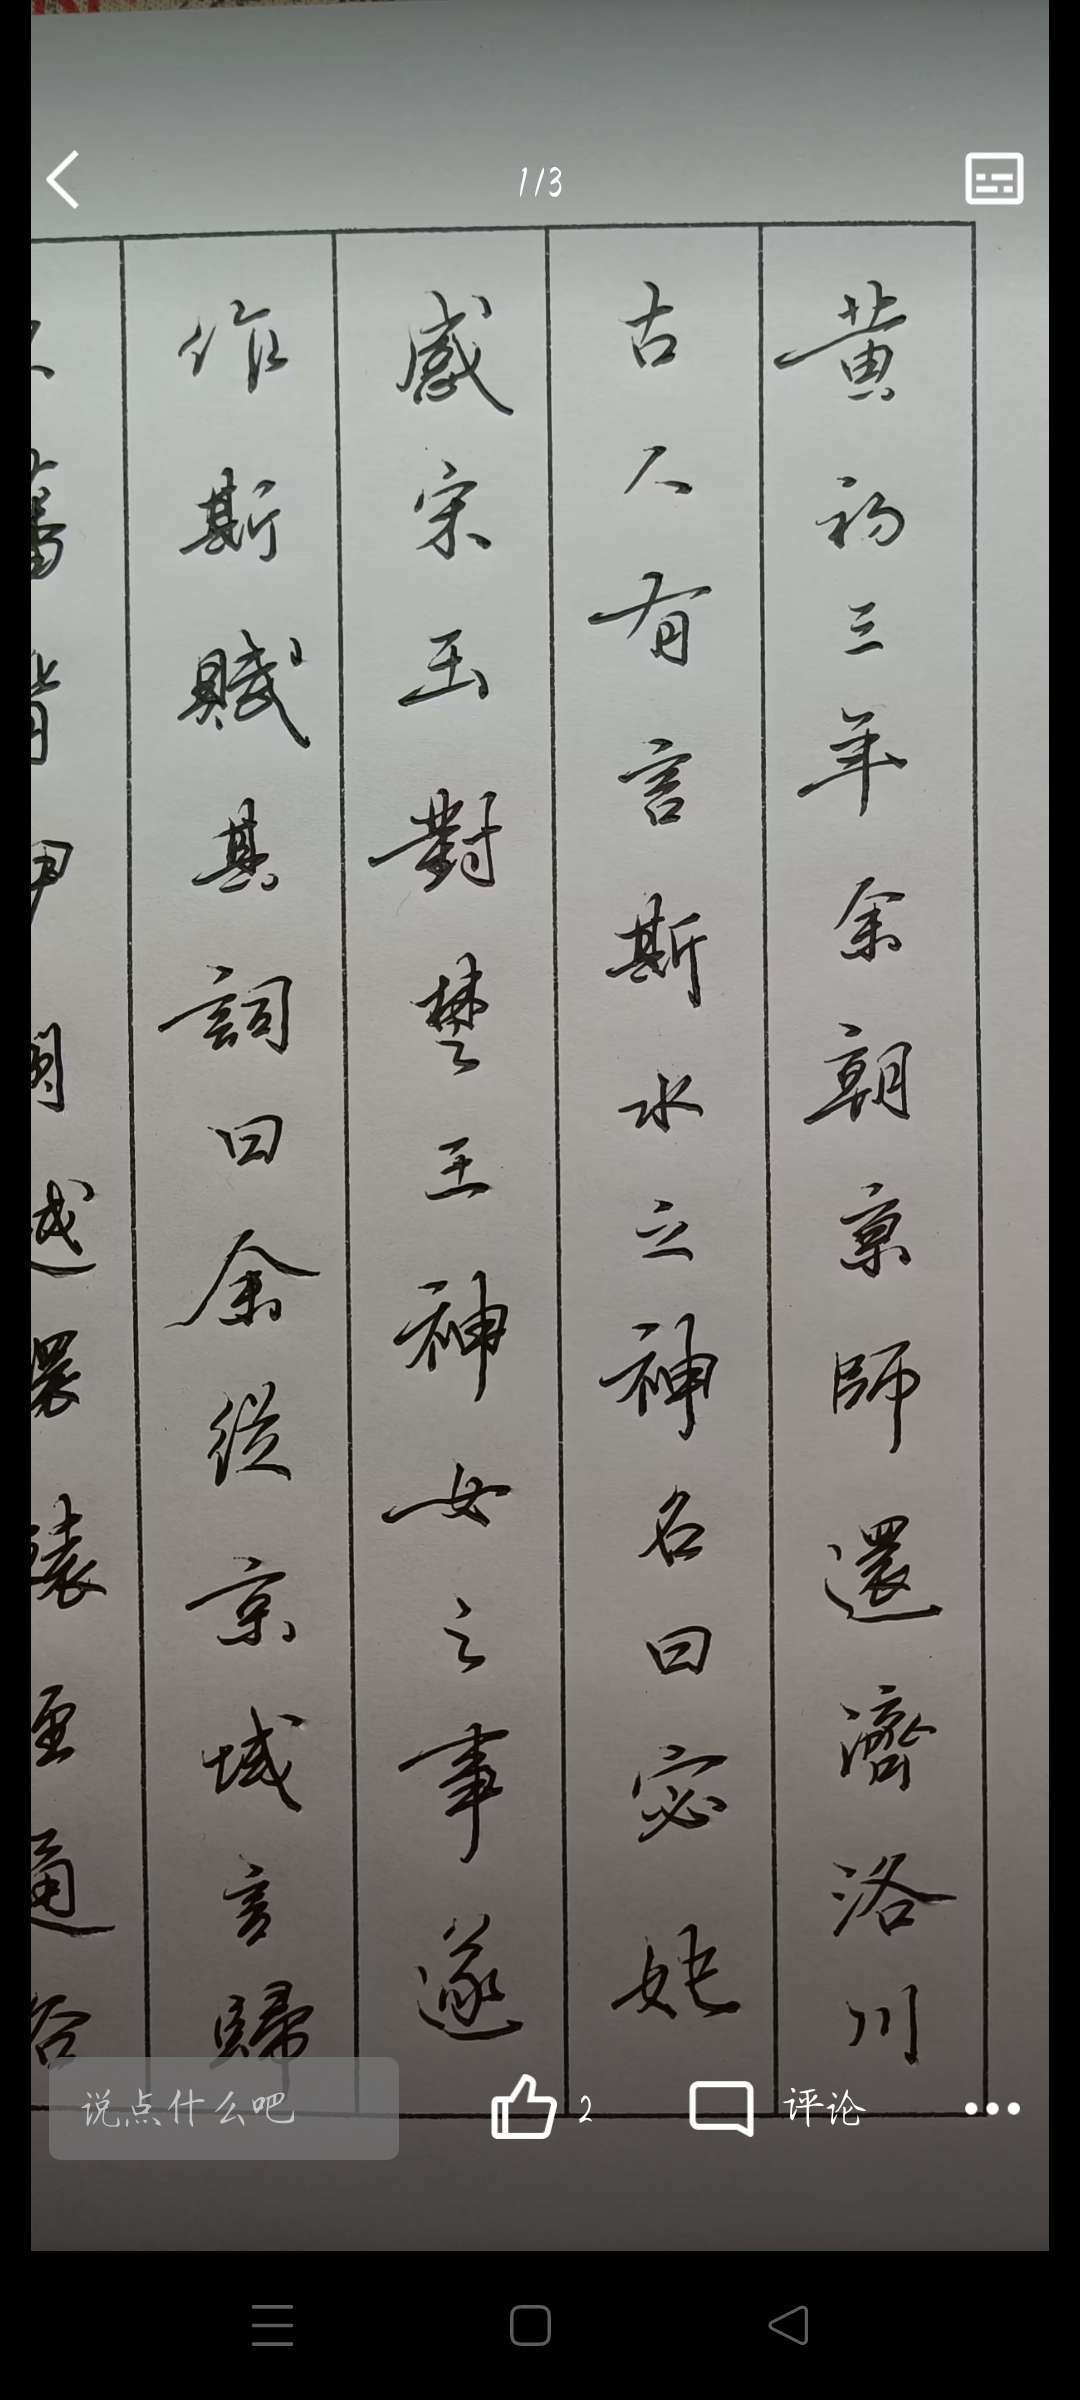 1/3
黄初三年余朝京師還濟洛川
古人有言斯水之神名曰宓妃
感宋玉對楚王神女之事遂
作斯賦其詞曰余從京域言歸
藩背伊闕越轘轅經通谷
说点什么吧
2
评论